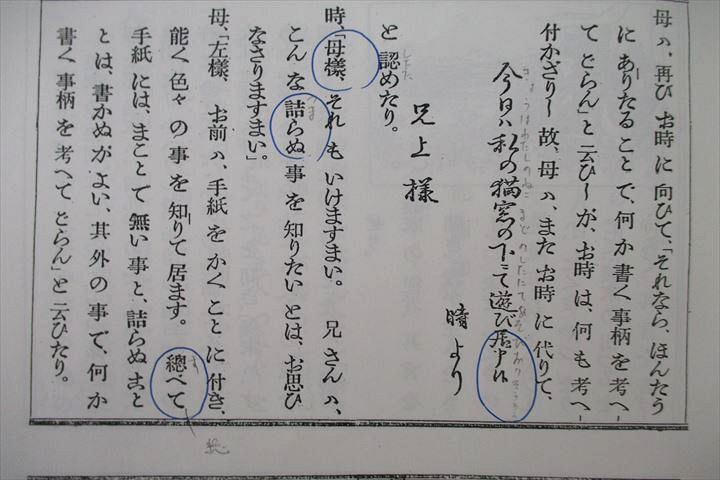 母ハ、再びお時に向ひて、「それなら、ほんたう
にありたることで、何か書く事柄を考へ
てごらん」と云ひしが、お時は、何も考へ
付かざりし故、母ハ、またお時に代りて、
今日ハ私の猫窓の下にて遊び居申候
きょうはわたしのねこまどのしたにてあそびおりもうしそうろう
時より
兄上様
と認めたり。
したた
時、「母樣、それもいけますまい。兄さんハ、
こんな詰らぬ事を知りたいとは、お思ひ
つま
なさりますまい」。
母、「左樣、お前ハ、手紙をかくことに付き、
能く色々の事を知りて居ます。總べて
す
総
手紙には、まことで無い事と、詰らぬこと
とは、書かぬがよい、其外の事で、何か
書く事柄を考へてごらん」と云ひたり。